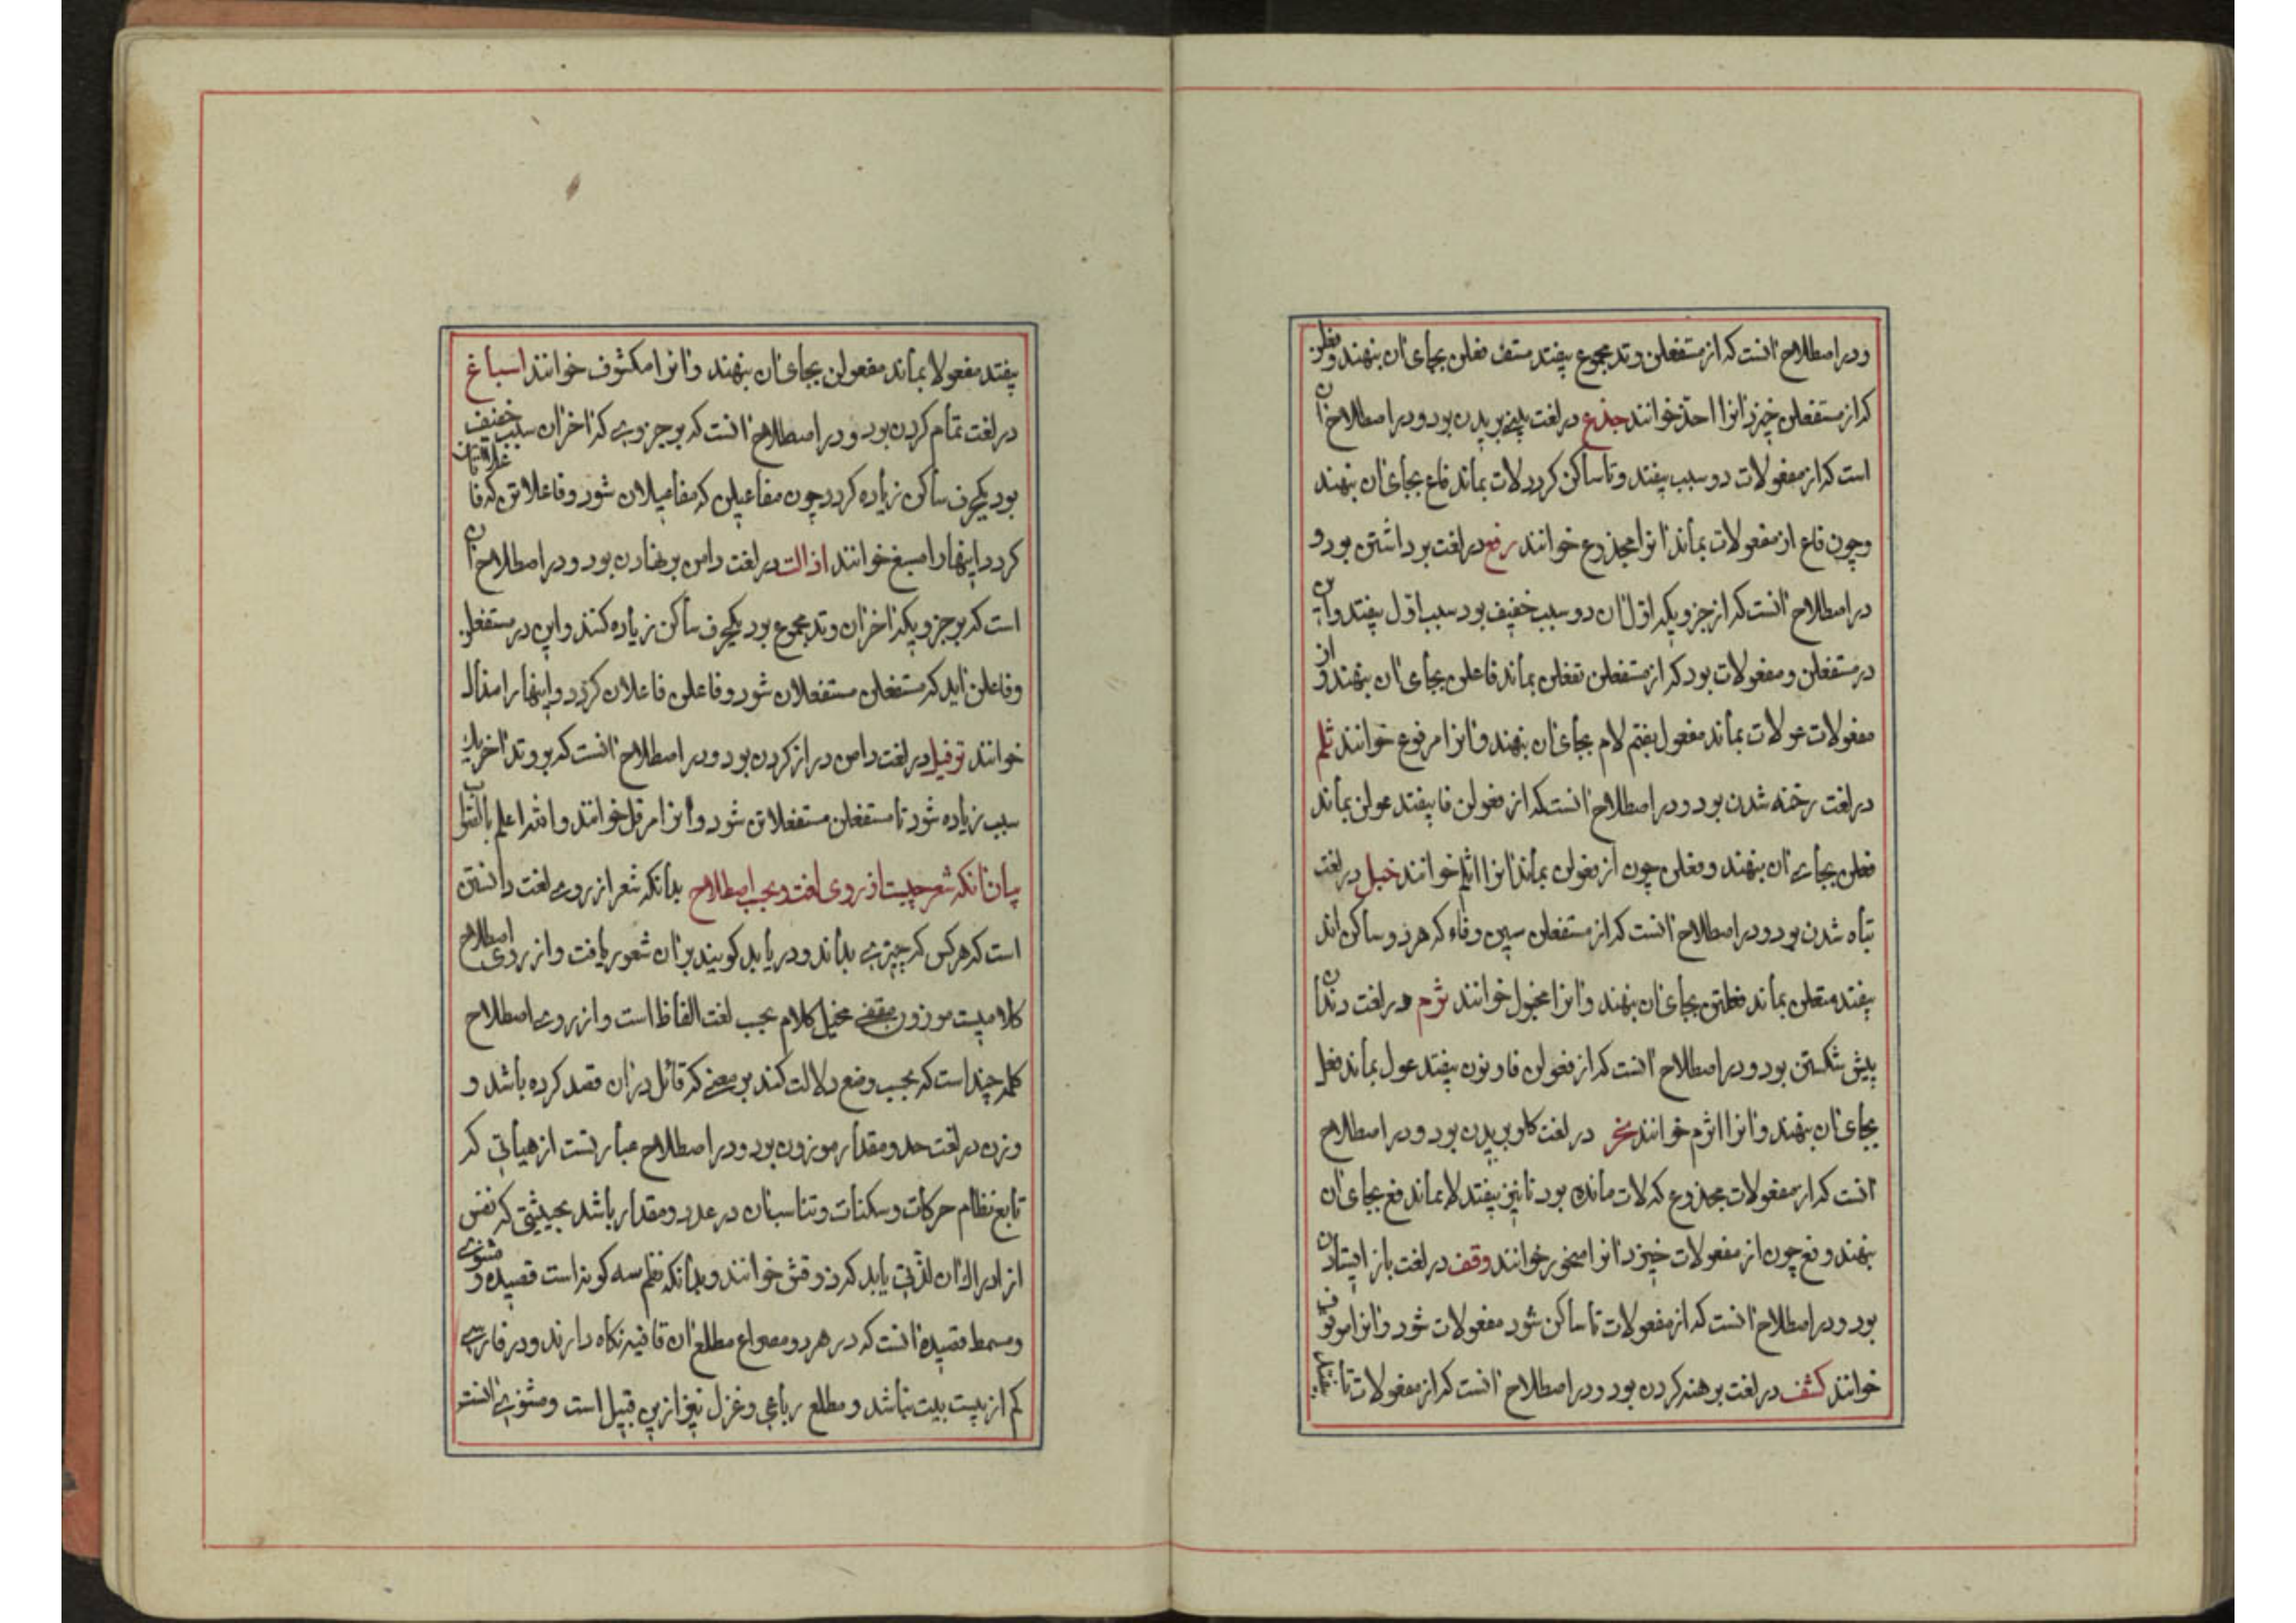 ودر اصطلاح انست که از مستفعلن وتد مجموع بیفتد مستف فعلن بجای ان بنهند وفعلن
که از مستفعلن خیزد انرا احذ خوانند جذع در لغت بینی بریدن بود ودر اصطلاح ان
است که از مفعولات دو سبب بیفتد وتا ساکن کردد لات بماند فاع بجای ان بنهند
وچون فاع از مفعولات بماند انرا مجذوع خوانند رفع در لغت برداشتن بود و
در اصطلاح انست که از جزویکه اول ان دو سبب خفیف بود سبب اول بیفتد واین
در مستفعلن ومفعولات بود که از مستفعلن تفعلن بماند فاعلن بجای ان بنهند واز
مفعولات عولات بماند مفعول بضم لام بجای ان بنهند وانرا مرفوع خوانند ثلم
در لغت رخنه شدن بود ودر اصطلاح انست که از فعولن فا بیفتد عولن بماند
فعلن بجای ان بنهند وفعلن چون از فعولن بماند انرا اثلم خوانند خبل در لغت
تباه شدن بود ودر اصطلاح انست که از مستفعلن سین وفاء که هر دو ساکن اند
بیفتد متعلن بماند فعلتن بجای ان بنهند وانرا مخبول خوانند ثرم در لغت دندان
پیش شکستن بود ودر اصطلاح انست که از فعولن فا ونون بیفتد عول بماند فعل
بجای ان بنهند وانرا اثرم خوانند نحر در لغت کلو بریدن بود ودر اصطلاح
انست که از مفعولات مجذوع که لات مانده بود تا نیز بیفتد لا بماند فع بجای ان
بنهند وفع چون از مفعولات خیزد انرا منحور خوانند وقف در لغت باز ایستادن
بود ودر اصطلاح انست که از مفعولات تا ساکن شود مفعولات شود وانرا موقوف
خوانند کشف در لغت برهنه کردن بود ودر اصطلاح انست که از مفعولات تا
بیفتد مفعولا بماند مفعولن بجای ان بنهند وانرا مکشوف خوانند اسباغ
در لغت تمام کردن بود ودر اصطلاح انست که بر جزوی که اخر ان سبب خفیف
بود یکحرف ساکن زیاده کردد چون مفاعیلن که مفاعیلان شود وفاعلاتن که فاعلاتان
کردد اینها را مسبغ خوانند اذالت در لغت دامن برنهادن بود ودر اصطلاح ان
است که بر جزویکه اخر ان وتد مجموع بود یکحرف ساکن زیاده کنند واین در مستفعلن
وفاعلن اید که مستفعلن مستفعلان شود وفاعلن فاعلان کردد واینها را مذال
خوانند ترفیل در لغت دامن دراز کردن بود ودر اصطلاح انست که بر وتد اخر یک
سبب زیاده شود تا مستفعلن مستفعلاتن شود وانرا مرفل خوانند والله اعلم بالصواب
بیان انکه شعر چیست از روی لغت وبحسب اصطلاح بدانکه شعر از روی لغت دانستن
است که هرکس که چیزی بداند ودریابد کویند بر ان شعور یافت واز روی اصطلاح
کلامیست موزون مقفی مخیل کلام بحسب لغت الفاظ است واز روی اصطلاح
کلمه چند است که بحسب وضع دلالت کند بر معنی که قائل در ان قصد کرده باشد و
وزن در لغت حد ومقدار موزون بود ودر اصطلاح عبارتست از هیأتی که
تابع نظام حرکات وسکنات وتناسب ان در عدد ومقدار باشد بحیثیتی که نفس
از ادراک ان لذتی یابد که ذوقش خوانند وبدانکه نظم سه کونه است قصیده ومثنوی
ومسمط قصیده انست که در هر دو مصراع مطلع ان قافیه نکاه دارند ودر فارسی
کم از بیست بیت نباشد ومطلع رباعی وغزل نیز ازین قبیل است ومثنوی انست